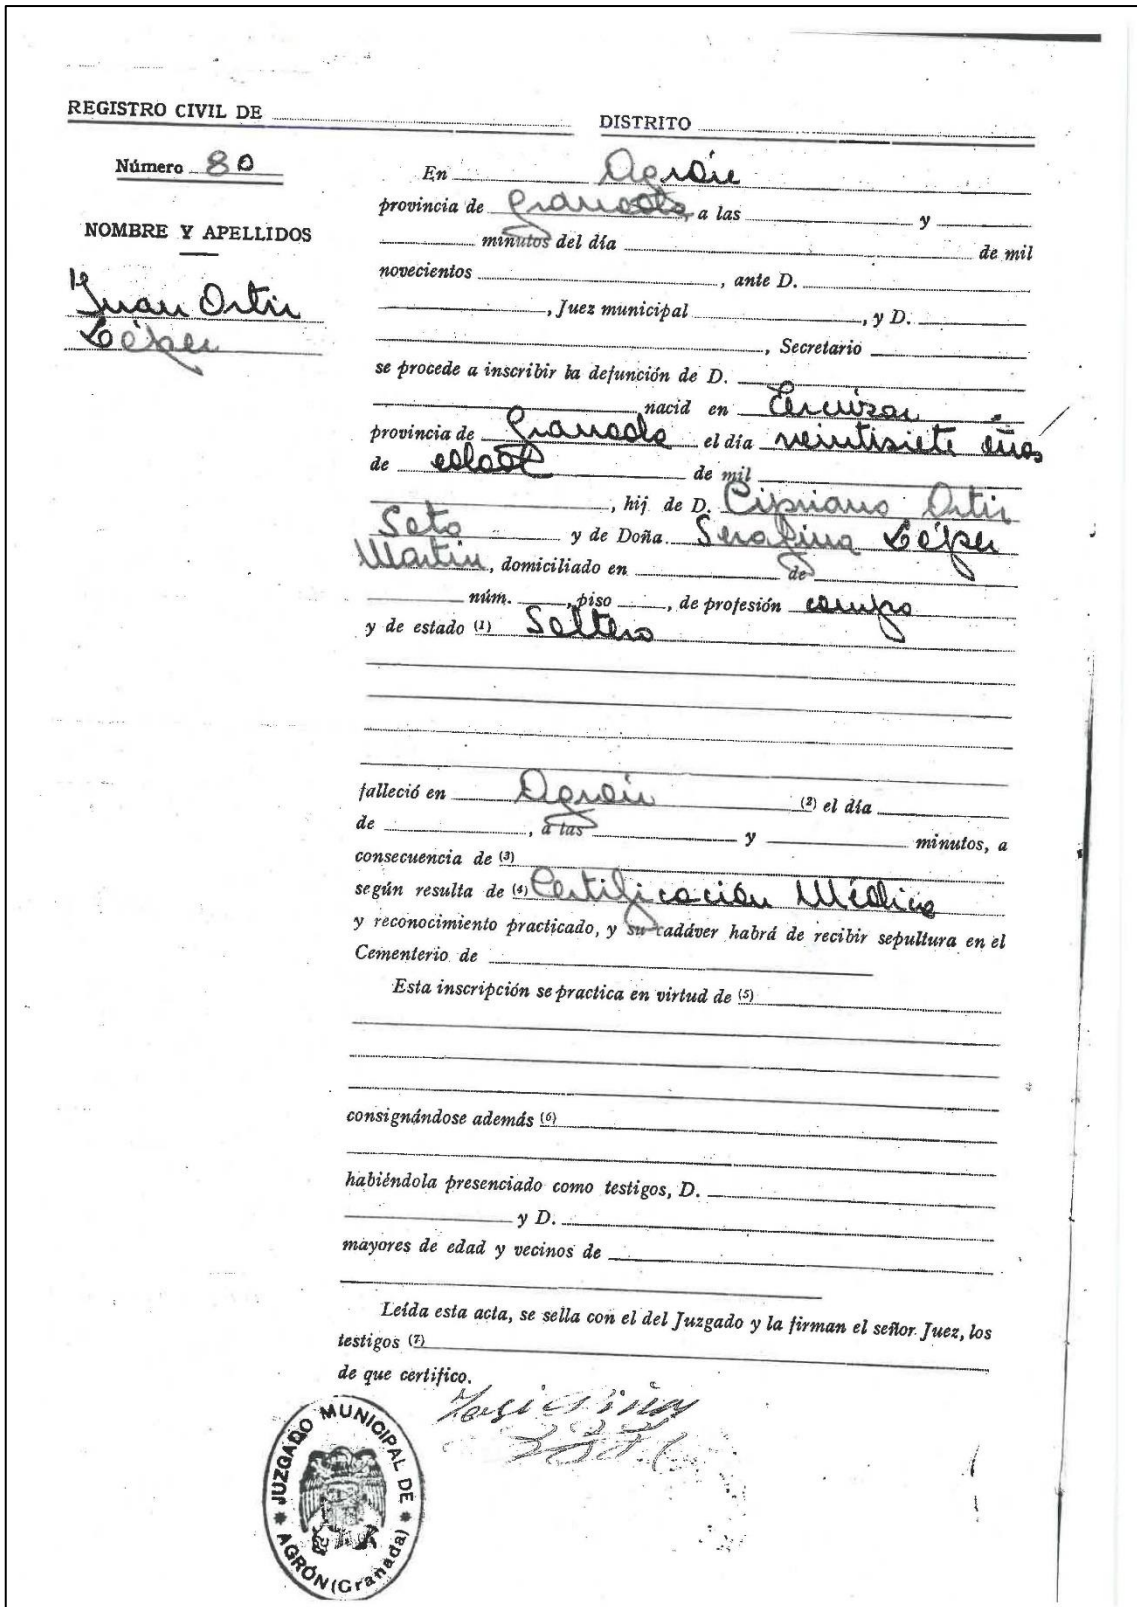 REGISTRO CIVIL DE DISTRITO
Número 80
NOMBRE Y APELLIDOS
Juan Ortiz
López
En Agrón
provincia de Granada, a las y
minutos del día de mil
novecientos , ante D.
, Juez municipal , y D.
, Secretario
se procede a inscribir la defunción de D.
nacid en
provincia de Granada el día veintisiete años
de edad de mil
, hij de D. Cipriano Ortiz
Soto y de Doña Serafina López
Martin, domiciliado en de
núm. , piso , de profesión campo
y de estado (1) Soltero
falleció en Agrón (2) el día
de , a las y minutos, a
consecuencia de (3)
según resulta de (4) Certificación Médica
y reconocimiento practicado, y su cadáver habrá de recibir sepultura en el
Cementerio de
Esta inscripción se practica en virtud de (5)
consignándose además (6)
habiéndola presenciado como testigos, D.
y D.
mayores de edad y vecinos de
Leída esta acta, se sella con el del Juzgado y la firman el señor Juez, los
testigos (7)
de que certifico.
JUZGADO MUNICIPAL DE
AGRÓN (Granada)